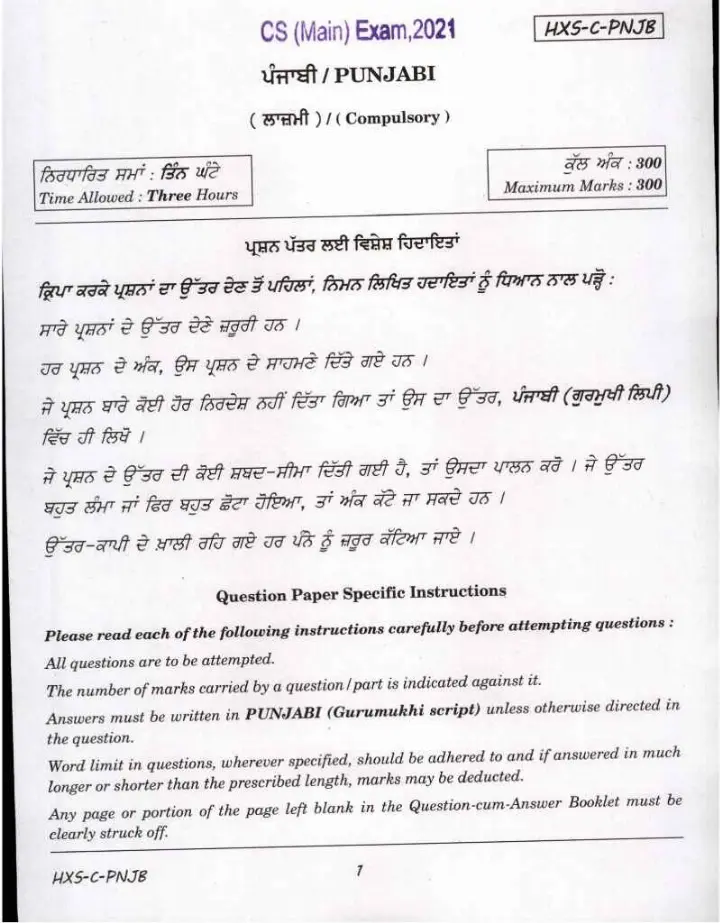 CS (Main) Exam,2021
HXS-C-PNJB
ਪੰਜਾਬੀ / PUNJABI
( ਲਾਜ਼ਮੀ ) / ( Compulsory )
ਨਿਰਧਾਰਿਤ ਸਮਾਂ : ਤਿੰਨ ਘੰਟੇ
Time Allowed : Three Hours
ਕੁੱਲ ਅੰਕ : 300
Maximum Marks : 300
ਪ੍ਰਸ਼ਨ ਪੱਤਰ ਲਈ ਵਿਸ਼ੇਸ਼ ਹਿਦਾਇਤਾਂ
ਕ੍ਰਿਪਾ ਕਰਕੇ ਪ੍ਰਸ਼ਨਾਂ ਦਾ ਉੱਤਰ ਦੇਣ ਤੋਂ ਪਹਿਲਾਂ, ਨਿਮਨ ਲਿਖਿਤ ਹਦਾਇਤਾਂ ਨੂੰ ਧਿਆਨ ਨਾਲ ਪੜ੍ਹੋ :
ਸਾਰੇ ਪ੍ਰਸ਼ਨਾਂ ਦੇ ਉੱਤਰ ਦੇਣੇ ਜ਼ਰੂਰੀ ਹਨ ।
ਹਰ ਪ੍ਰਸ਼ਨ ਦੇ ਅੰਕ, ਉਸ ਪ੍ਰਸ਼ਨ ਦੇ ਸਾਹਮਣੇ ਦਿੱਤੇ ਗਏ ਹਨ ।
ਜੇ ਪ੍ਰਸ਼ਨ ਬਾਰੇ ਕੋਈ ਹੋਰ ਨਿਰਦੇਸ਼ ਨਹੀਂ ਦਿੱਤਾ ਗਿਆ ਤਾਂ ਉਸ ਦਾ ਉੱਤਰ, ਪੰਜਾਬੀ (ਗੁਰਮੁਖੀ ਲਿਪੀ)
ਵਿੱਚ ਹੀ ਲਿਖੋ ।
ਜੇ ਪ੍ਰਸ਼ਨ ਦੇ ਉੱਤਰ ਦੀ ਕੋਈ ਸ਼ਬਦ-ਸੀਮਾ ਦਿੱਤੀ ਗਈ ਹੈ, ਤਾਂ ਉਸਦਾ ਪਾਲਨ ਕਰੋ । ਜੇ ਉੱਤਰ
ਬਹੁਤ ਲੰਮਾ ਜਾਂ ਫਿਰ ਬਹੁਤ ਛੋਟਾ ਹੋਇਆ, ਤਾਂ ਅੰਕ ਕੱਟੇ ਜਾ ਸਕਦੇ ਹਨ ।
ਉੱਤਰ-ਕਾਪੀ ਦੇ ਖ਼ਾਲੀ ਰਹਿ ਗਏ ਹਰ ਪੰਨੇ ਨੂੰ ਜ਼ਰੂਰ ਕੱਟਿਆ ਜਾਏ ।
Question Paper Specific Instructions
Please read each of the following instructions carefully before attempting questions :
All questions are to be attempted.
The number of marks carried by a question/part is indicated against it.
Answers must be written in PUNJABI (Gurumukhi script) unless otherwise directed in
the question.
Word limit in questions, wherever specified, should be adhered to and if answered in much
longer or shorter than the prescribed length, marks may be deducted.
Any page or portion of the page left blank in the Question-cum-Answer Booklet must be
clearly struck off.
HXS-C-PNJB
1